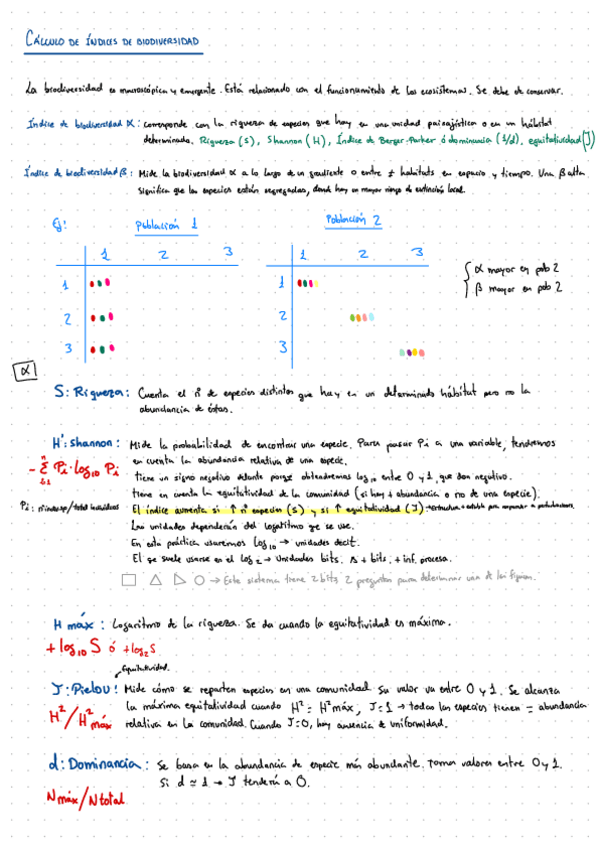 CÁLCULO DE ÍNDICES DE BIODIVERSIDAD
La biodiversidad es macroscópica y emergente. Está relacionado con el funcionamiento de los ecosistemas. Se debe de conservar.
Índice de biodiversidad α: corresponde con la riqueza de especies que hay en una unidad paisajística o en un hábitat
determinado. Riqueza (S), Shannon (H), Índice de Berger-Parker ó dominancia (1/d), equitatividad (J)
Índice de biodiversidad β: Mide la biodiversidad α a lo largo de un gradiente o entre ≠ habitats en espacio y tiempo. Una β alta
significa que las especies están segregadas, donde hay un mayor riesgo de extinción local.
Ej: Población 1 Población 2
1 2 3 1 2 3
1 1
2 2
3 3
α mayor en pob 2
β mayor en pob 2
α
S: Riqueza: Cuenta el nº de especies distintas que hay en un determinado hábitat pero no la
abundancia de éstas.
H': Shannon: Mide la probabilidad de encontrar una especie. Para pasar Pi a una variable, tendremos
en cuenta la abundancia relativa de una especie.
- Σ Pi · log10 Pi
tiene un signo negativo delante porque obtendremos log10 entre 0 y 1, que dan negativo.
tiene en cuenta la equitatividad de la comunidad (si hay + abundancia o no de una especie).
Pi: nº indv sp/total individuos
El índice aumenta si ↑ nº especies (S) y si ↑ equitatividad (J)
Las unidades dependerán del logaritmo que se use.
En esta práctica usaremos Log10 → unidades decit.
El que suele usarse es el Log2 → Unidades bits. A + bits, + inf. procesa.
→ Este sistema tiene 2 bits, 2 preguntas para determinar una de las figuras.
H máx: Logaritmo de la riqueza. Se da cuando la equitatividad es máxima.
+log10 S ó +log2 S
Equitatividad.
J: Pielou: Mide cómo se reparten especies en una comunidad. Su valor va entre 0 y 1. Se alcanza
la máxima equitatividad cuando H² = H² máx, J=1 → todas las especies tienen = abundancia
H²/H² máx
relativa en la comunidad. Cuando J=0, hay ausencia de uniformidad.
d: Dominancia: Se basa en la abundancia de especie más abundante. Toma valores entre 0 y 1.
Si d ≃ 1 → J tendería a 0.
Nmáx/Ntotal